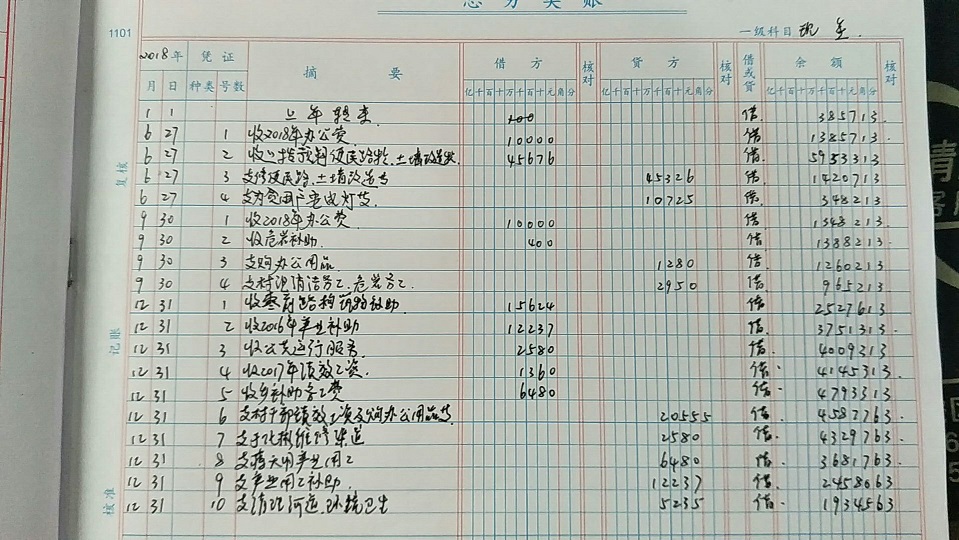 总分类账
1101
一级科目 现金
2018年 凭证 摘要 借方 核对 贷方 核对 借或贷 余额 核对
月 日 种类 号数 亿千百十万千百十元角分 亿千百十万千百十元角分 亿千百十万千百十元角分
1 1 上年转来 借 385713
6 27 1 收2018年办公费 10000 借 1385713
6 27 2 便民路 土墙改造款 45676 借 5953313
6 27 3 支修便民路、土墙改造 45326 借 1420713
6 27 4 10725 借 348213
9 30 1 收2018年办公费 10000 借 1348213
9 30 2 收危岩补助 400 借 1388213
9 30 3 支购办公用品 1280 借 1260213
9 30 4 支村 清洁 危岩 2950 借 965213
12 31 1 补助 15624 借 2527613
12 31 2 收2016年产业补助 12237 借 3751313
12 31 3 收公共运行服务 2580 借 4009313
12 31 4 收2017年绩效工资 1360 借 4145313
12 31 5 收乡补助务工费 6480 借 4793313
12 31 6 支村干部绩效工资及购办公用品 20555 借 4587763
12 31 7 维修渠道 2580 借 4329763
12 31 8 产业用工 6480 借 3681763
12 31 9 支产业用工补助 12237 借 2458063
12 31 10 支清理河道、环境卫生 5235 借 1934563
复核
记账
核准